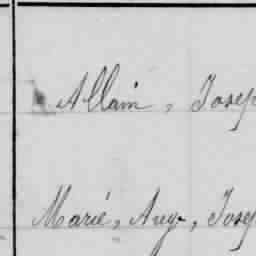 Allain, Josep
Marié, Aug., Josep